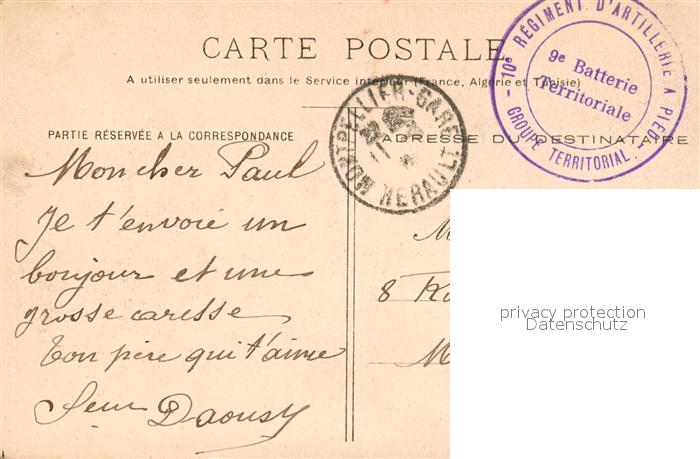 CARTE POSTALE
A utiliser seulement dans le Service intérieur (France, Algérie et Tunisie)
10e RÉGIMENT D'ARTILLERIE A PIED
9e Batterie
Territoriale
- GROUPE TERRITORIAL -
MONTPELLIER-GARE
HERAULT
PARTIE RÉSERVÉE A LA CORRESPONDANCE
ADRESSE DU DESTINATAIRE
Mon cher Paul
Je t'envoie un
bonjour et une
grosse caresse
Ton père qui t'aime
Daousy
8
privacy protection
Datenschutz